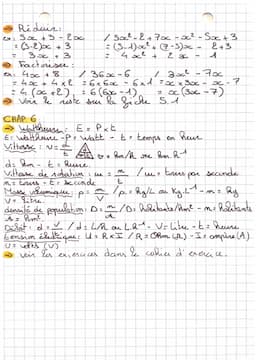 → Réduire :
ex: 5x + 3 - 2x / 5x² - 2 + 7x - x² - 5x + 3
= (5-2)x + 3 = (5-1)x² + (7-5)x - 2+3
= 3x + 3 = 4x² + 2x - 1
→ Factoriser :
ex: 4x + 8 / 36x - 6 / 3x² - 7x
= 4x + 4 x 2 = 6 x 6x - 6 x 1 = x x 3x - x x 7
= 4 (x + 2) = 6 (6x - 1) = x (3x - 7)
→ Voir le reste sur la fiche 5.1
CHAP 6
→ Wattheure : E = P x t
E = wattheure - P = watt - t = temps en heure
Vitesse : v = d/t v = Km/h ou Km.h⁻¹
d = Km - t = heure
Vitesse de rotation : m = m/t / m = tours par seconde
m = tours - t = seconde
Masse volumique : ρ = m/V / ρ = Kg/L ou Kg.L⁻¹ - m = Kg
V = litre
densité de population : D = m/s / D = habitants/Km² - m = habitants
s = Km²
Débit : d = V/t / d = L/h ou L.h⁻¹ - V = litre - t = heure
Tension électrique : U = R x I / R = Ohm (Ω) - I = ampère (A)
U = volts (V)
→ voir les exercices dans le cahier d'exercice.